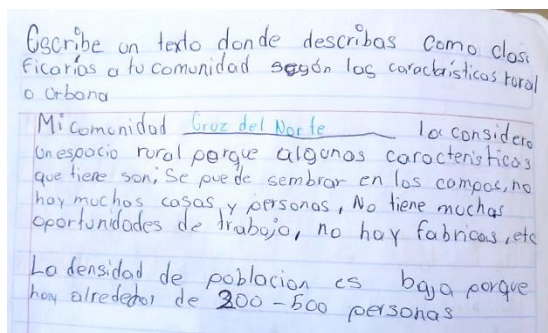 Escribe un texto donde describas como clasi
ficarías a tu comunidad según las caractarísticas rural
o urbana
Mi comunidad Cruz del Norte la considero
un espacio rural porque algunas caracteristicas
que tiene son; Se puede sembrar en los campos, no
hay muchas casas y personas, No tiene muchas
oportunidades de trabajo, no hay fabricas, etc
La densidad de poblacion es baja porque
hay alrededor de 200 - 500 personas